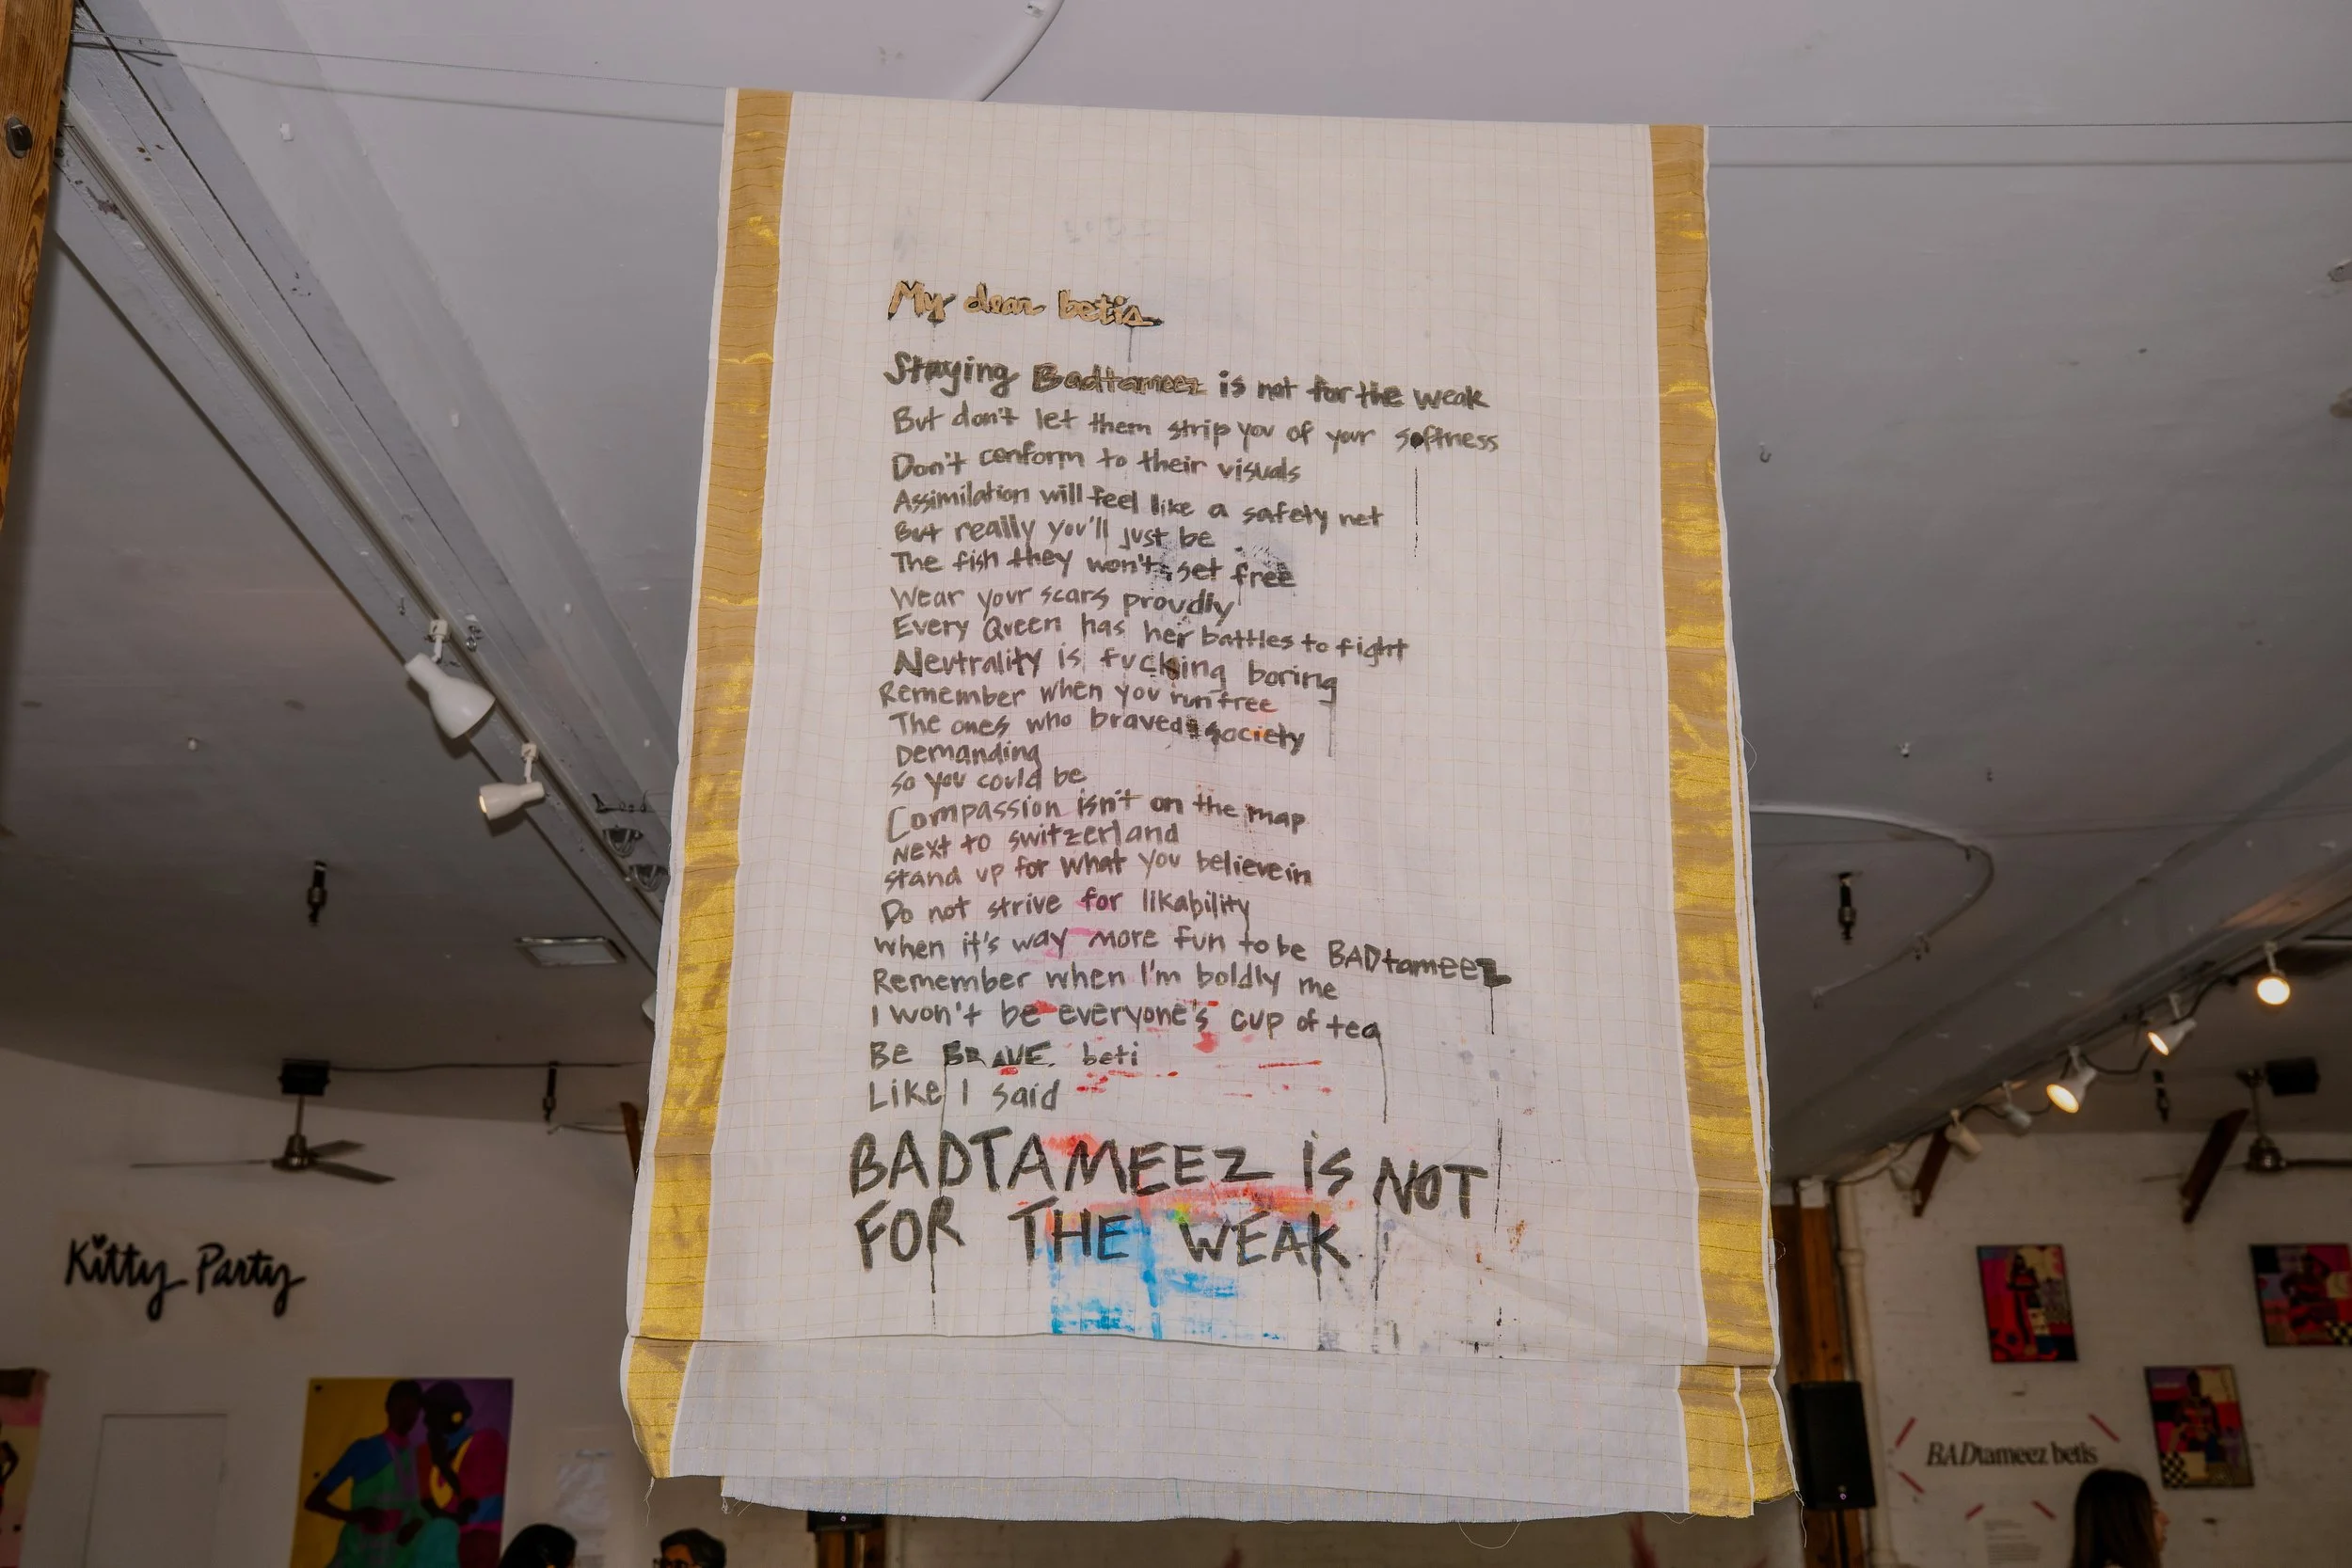 My dear betis
Staying Badtameez is not for the weak
But don't let them strip you of your softness
Don't conform to their visuals
Assimilation will feel like a safety net
But really you'll just be
The fish they won't set free
Wear your scars proudly
Every Queen has her battles to fight
Neutrality is fucking boring
Remember when you run free
The ones who braved society
Demanding
so you could be
Compassion isn't on the map
Next to switzerland
stand up for what you believe in
Do not strive for likability
when it's way more fun to be BADtameez
Remember when I'm boldly me
I won't be everyone's cup of tea
Be BRAVE beti
Like I said
BADTAMEEZ is NOT
FOR THE WEAK
Kitty Party
BADtameez betis